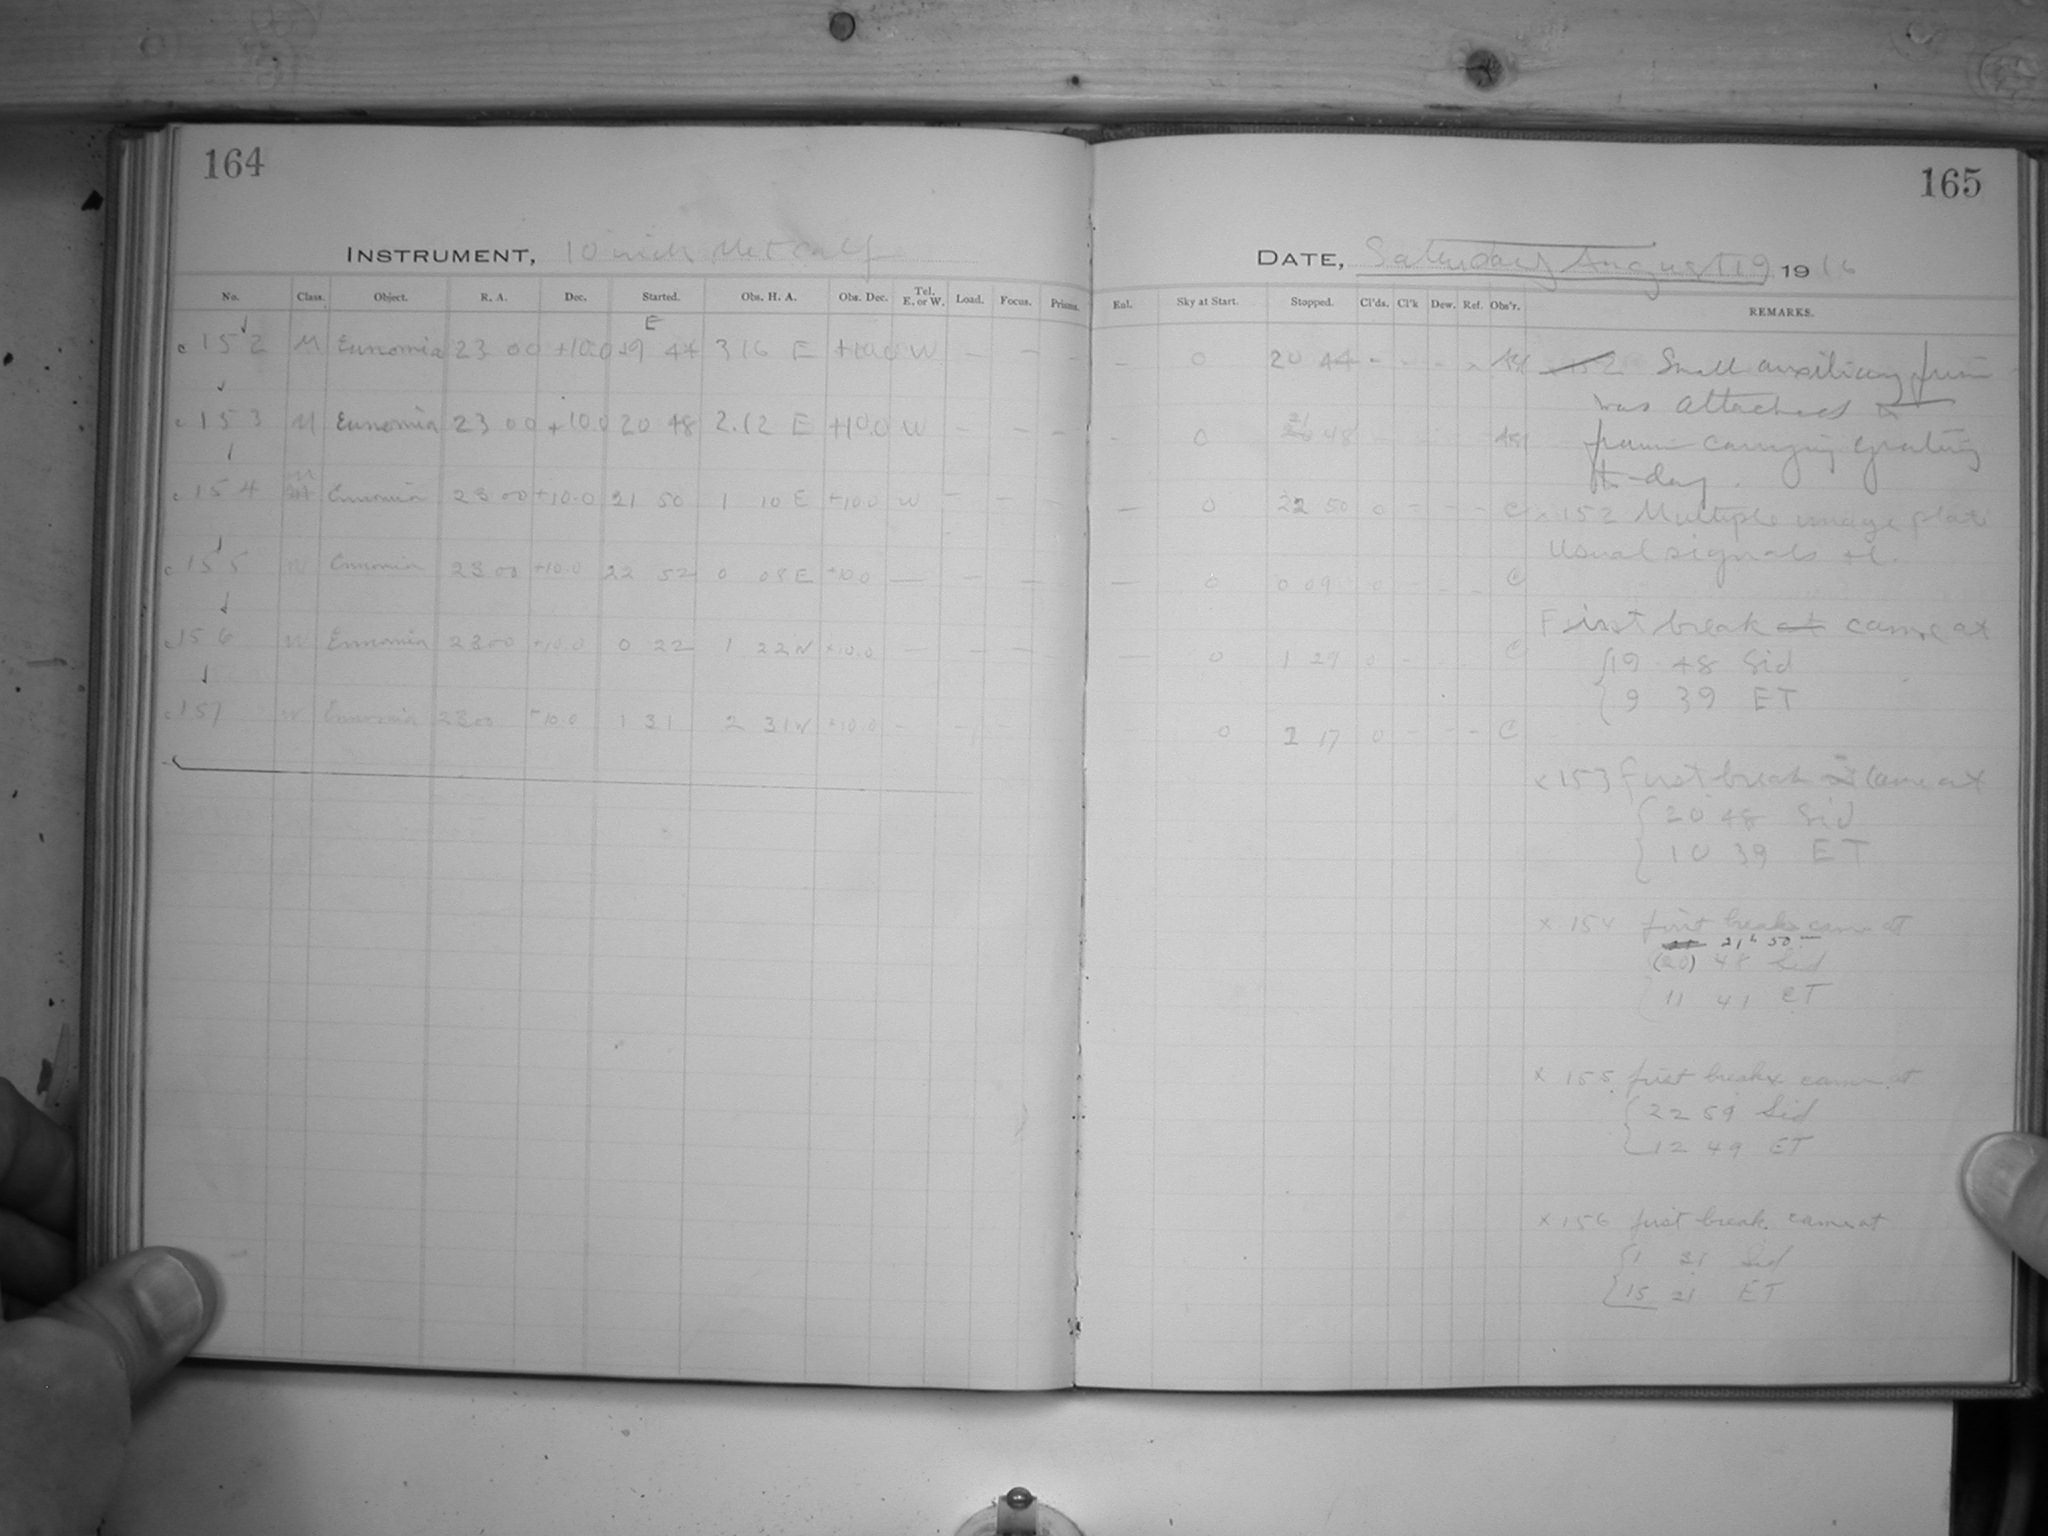 164
INSTRUMENT, 10 inch Metcalf
No. Class. Object. R. A. Dec. Started. Obs. H. A. Obs. Dec. Tel. E. or W. Load. Focus. Prisms.
E
c 152 M Eunomia 23 00 +10.0 19 44 3 16 E +10.0 W — — —
c 153 M Eunomia 23 00 +10.0 20 48 2.12 E +10.0 W — — —
c 154 M Eunomia 23 00 +10.0 21 50 1 10 E +10.0 W — — —
c 155 M Eunomia 23 00 +10.0 22 52 0 08 E +10.0 — — —
c 156 M Eunomia 23 00 +10.0 0 22 1 22 W +10.0 — — —
c 157 M Eunomia 23 00 +10.0 1 31 2 31 W +10.0 — — —
165
DATE, Saturday August 19 1916
Eal. Sky at Start. Stopped. Cl'ds. Cl'k Dew. Ref. Obs'r. REMARKS.
— 0 20 44 - - -
- 0 21 48 -
— 0 22 50 0 - - - C
— 0 0 09 0 - - - C
— 0 1 29 0 - C
0 2 17 0 - - - C
Small auxiliary
was attached to
carrying grating
to-day.
x 152 Multiple image plate
Usual signals
First break at came at
19 48 Sid
9 39 ET
x 153 first break came at
20 48 Sid
10 39 ET
x 154 first break came at
21h 50
(20) 48 Sid
11 41 ET
x 155 first break came at
22 59 Sid
12 49 ET
x 156 first break came at
1 31 Sid
15 21 ET